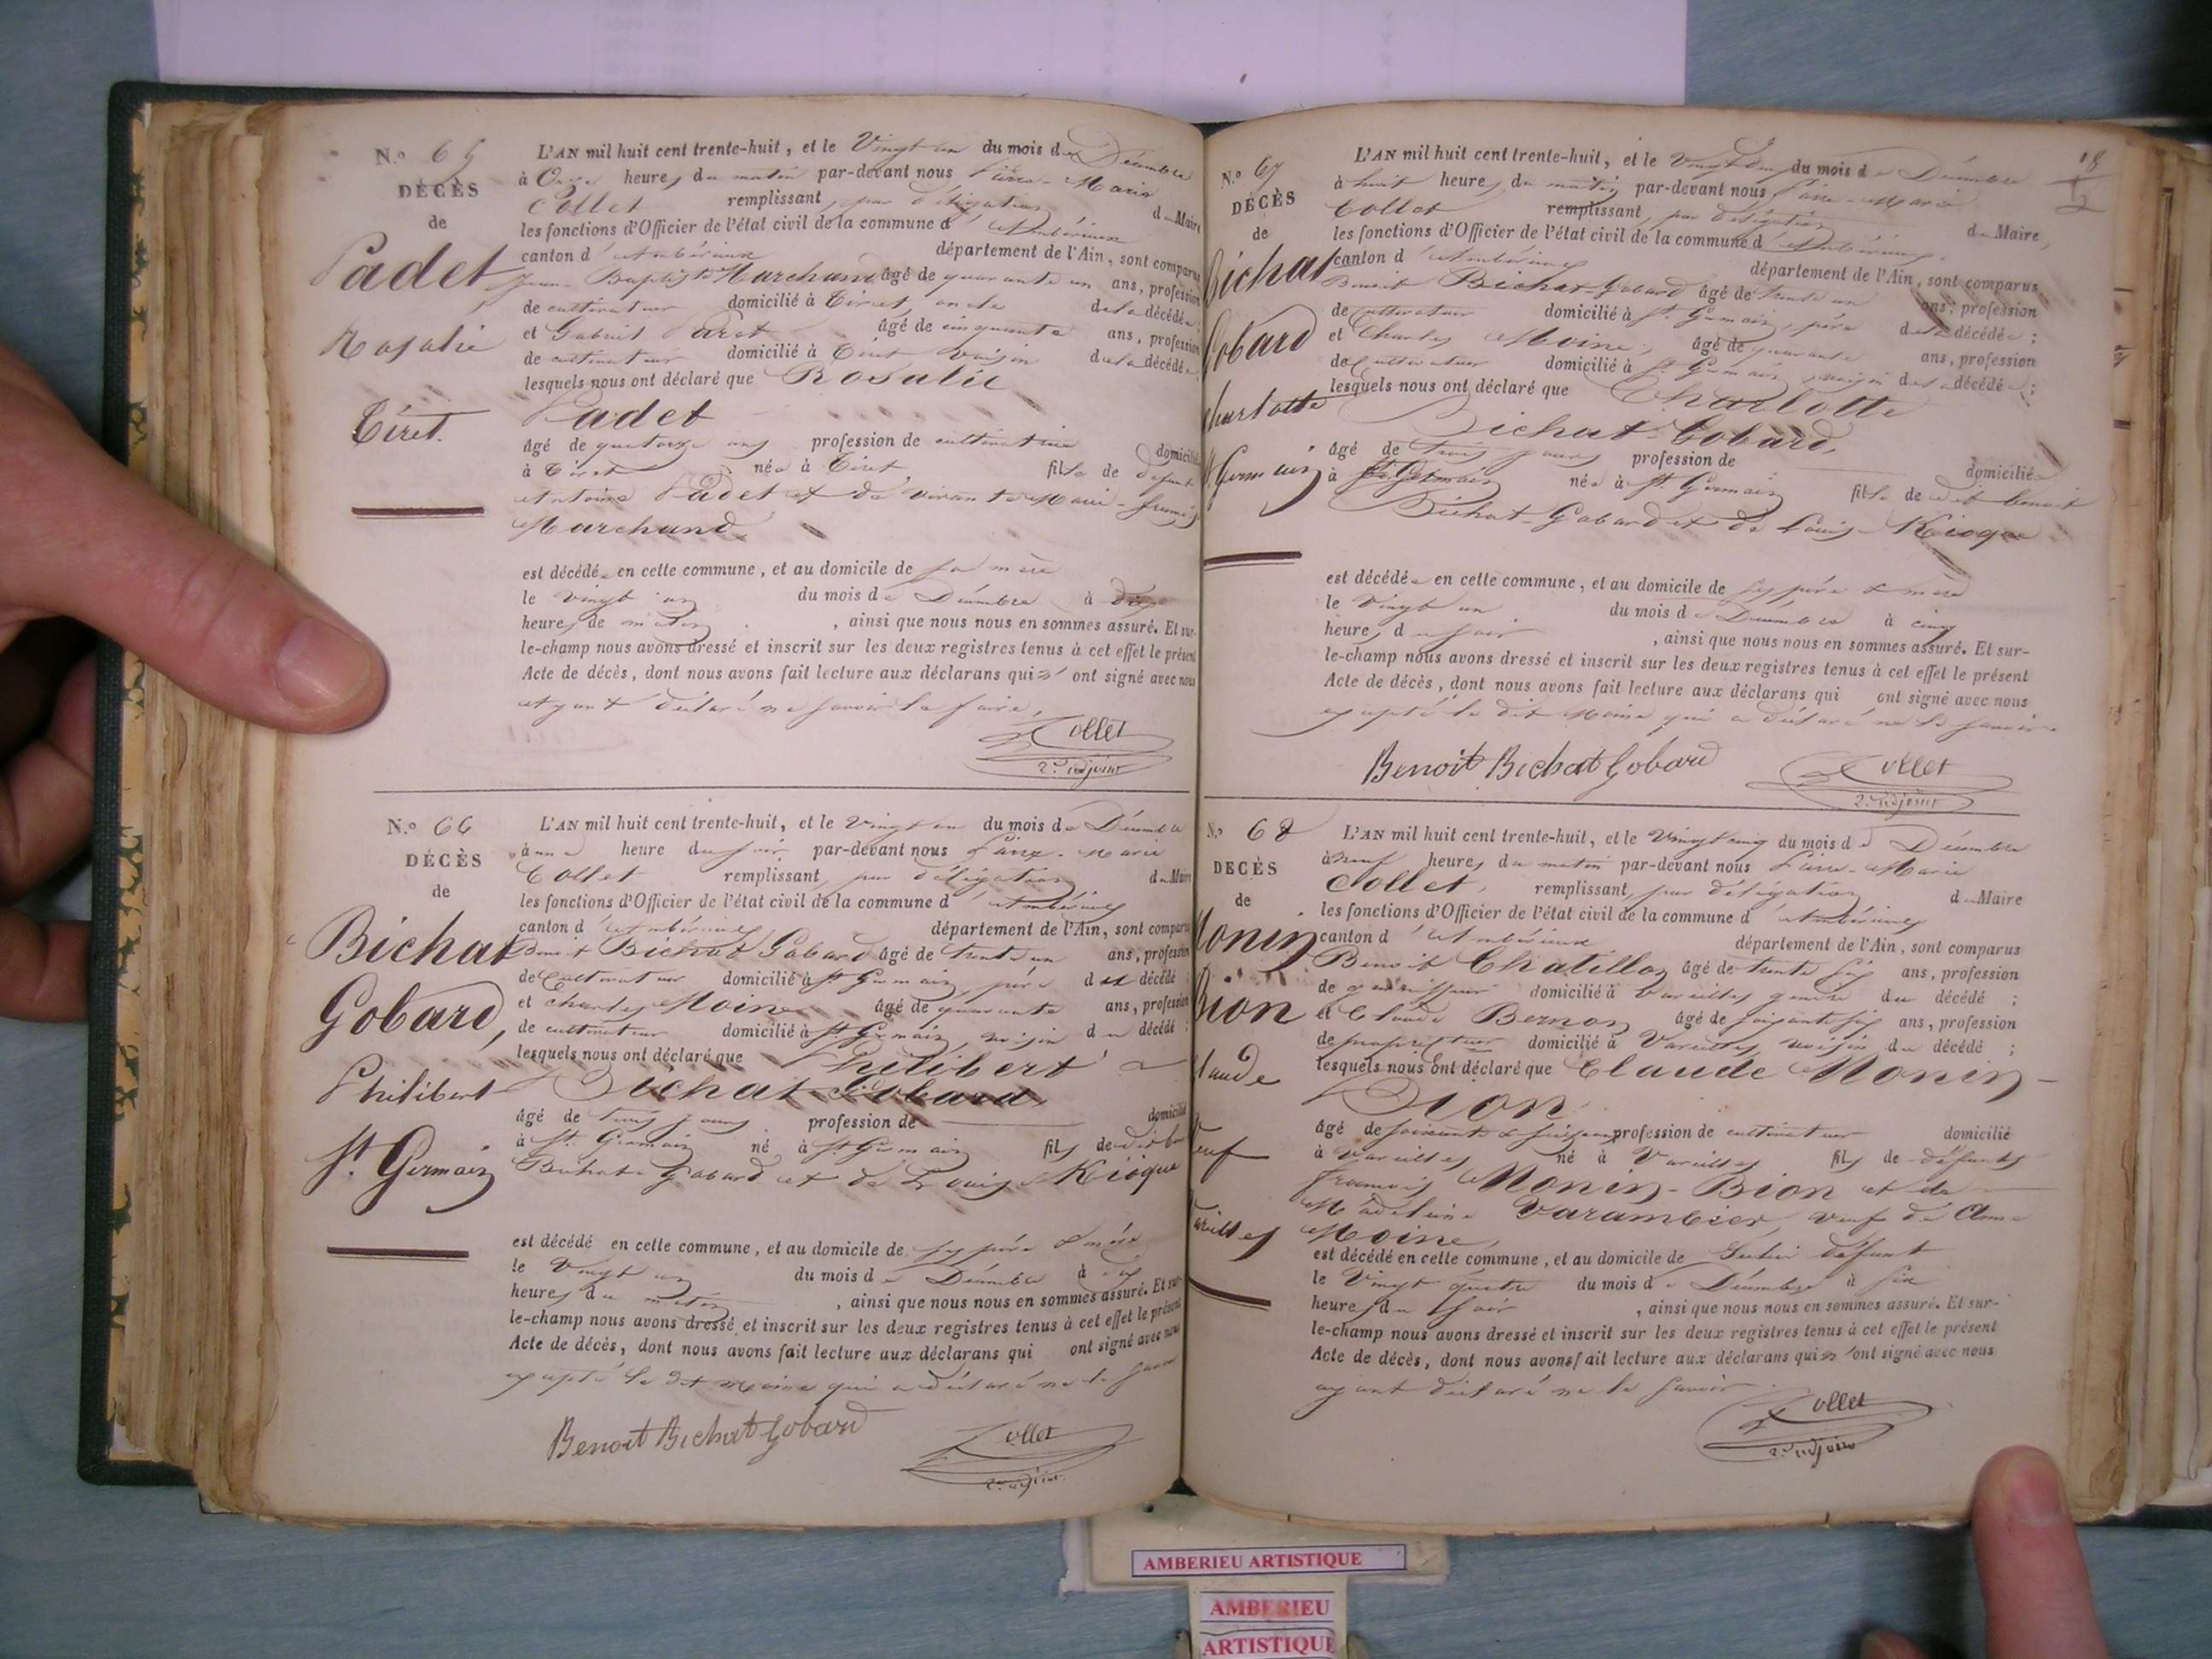 N.o 65
DÉCÈS
de
Padet
Rosalie
Tiret.
L'AN mil huit cent trente-huit, et le Vingt un du mois de Décembre
à Onze heures du matin par-devant nous Pierre-Marie
Collet remplissant, par délégation du Maire
les fonctions d'Officier de l'état civil de la commune d'Ambérieux
canton d'Ambérieux département de l'Ain, sont comparus
Jean-Baptiste Marchand âgé de quarante un ans, profession
de cultivateur domicilié à Tiret, oncle de la décédée;
et Gabriel âgé de cinquante ans, profession
de cultivateur domicilié à Tiret voisin de la décédée,
lesquels nous ont déclaré que Rosalie
Padet
âgé de quatorze ans profession de cultivatrice domicilié
à Tiret née à Tiret fille de défunt
Antoine Padet et de vivante Marie-
Marchand,
est décédée en cette commune, et au domicile de sa mère
le vingt un du mois de Décembre à dix
heures de matin, ainsi que nous nous en sommes assuré. Et sur-
le-champ nous avons dressé et inscrit sur les deux registres tenus à cet effet le présent
Acte de décès, dont nous avons fait lecture aux déclarans qui n'ont signé avec nous
ayant déclaré ne savoir le faire.
Collet
2.e adjoint
N.o 66
DÉCÈS
de
Bichat
Gobard,
Philibert
St. Germain
L'AN mil huit cent trente-huit, et le vingt un du mois de Décembre
à une heure du soir par-devant nous Pierre-Marie
Collet remplissant, par délégation du Maire
les fonctions d'Officier de l'état civil de la commune d'Ambérieux
canton d'Ambérieux département de l'Ain, sont comparus
Benoit Bichat Gobard âgé de trente un ans, profession
de cultivateur domicilié à St. Germain, père du décédé;
et Charles Moine âgé de quarante ans, profession
de cultivateur domicilié à St. Germain, voisin du décédé;
lesquels nous ont déclaré que Philibert
Bichat-Gobard,
âgé de trois jours profession de domicilié
à St. Germain né à St. Germain fils de dit
Bichat-Gobard et de Louise Kioque
est décédé en cette commune, et au domicile de ses père & mère
le Vingt un du mois de Décembre à dix
heures du matin, ainsi que nous nous en sommes assuré. Et sur-
le-champ nous avons dressé et inscrit sur les deux registres tenus à cet effet le présent
Acte de décès, dont nous avons fait lecture aux déclarans qui ont signé avec nous
excepté le dit Moine qui a déclaré ne le savoir
Benoit Bichat Gobard
Collet
2.e adjoint
18
N.o 67
DÉCÈS
de
Bichat
Gobard
Charlotte
St. Germain
L'AN mil huit cent trente-huit, et le Vingt deux du mois de Décembre
à huit heures du matin par-devant nous Pierre-Marie
Collet remplissant, par délégation du Maire,
les fonctions d'Officier de l'état civil de la commune d'Ambérieux
canton d'Ambérieux département de l'Ain, sont comparus
Benoit Bichat Gobard âgé de trente un ans, profession
de cultivateur domicilié à St. Germain, père de la décédée;
et Charles Moine, âgé de quarante ans, profession
de cultivateur domicilié à St. Germain, voisin de la décédée;
lesquels nous ont déclaré que Charlotte
Bichat-Gobard,
âgé de trois jours profession de domiciliée
à St. Germain née à St. Germain fille de dit benoit
Bichat-Gobard et de Louise Kioque
est décédée en cette commune, et au domicile de ses père & mère
le Vingt un du mois de Décembre à cinq
heures du soir, ainsi que nous nous en sommes assuré. Et sur-
le-champ nous avons dressé et inscrit sur les deux registres tenus à cet effet le présent
Acte de décès, dont nous avons fait lecture aux déclarans qui ont signé avec nous
excepté le dit Moine qui a déclaré ne le savoir.
Benoit Bichat Gobard
Collet
2.e adjoint
N.o 68
DÉCÈS
de
Monin
Bion
Claude
Veuf
Vareilles
L'AN mil huit cent trente-huit, et le Vingt cinq du mois de Décembre
à neuf heures du matin par-devant nous Pierre-Marie
Collet, remplissant, par délégation du Maire
les fonctions d'Officier de l'état civil de la commune d'Ambérieux
canton d'Ambérieux département de l'Ain, sont comparus
Benoit Chatillon âgé de trente six ans, profession
de domicilié à Vareilles gendre du décédé;
et Claude Bernon âgé de soixante six ans, profession
de propriétaire domicilié à Vareilles voisin du décédé;
lesquels nous ont déclaré que Claude Monin-
Bion,
âgé de soixante profession de cultivateur domicilié
à Vareilles né à Vareilles fils de défunts
François Monin-Bion et de
Madeleine Varambier, veuf de Anne
Moine,
est décédé en cette commune, et au domicile de défunt
le Vingt quatre du mois de Décembre à six
heures du soir, ainsi que nous nous en sommes assuré. Et sur-
le-champ nous avons dressé et inscrit sur les deux registres tenus à cet effet le présent
Acte de décès, dont nous avons fait lecture aux déclarans qui n'ont signé avec nous
ayant déclaré ne le savoir.
Collet
2.e adjoint
AMBERIEU ARTISTIQUE
AMBERIEU
ARTISTIQUE